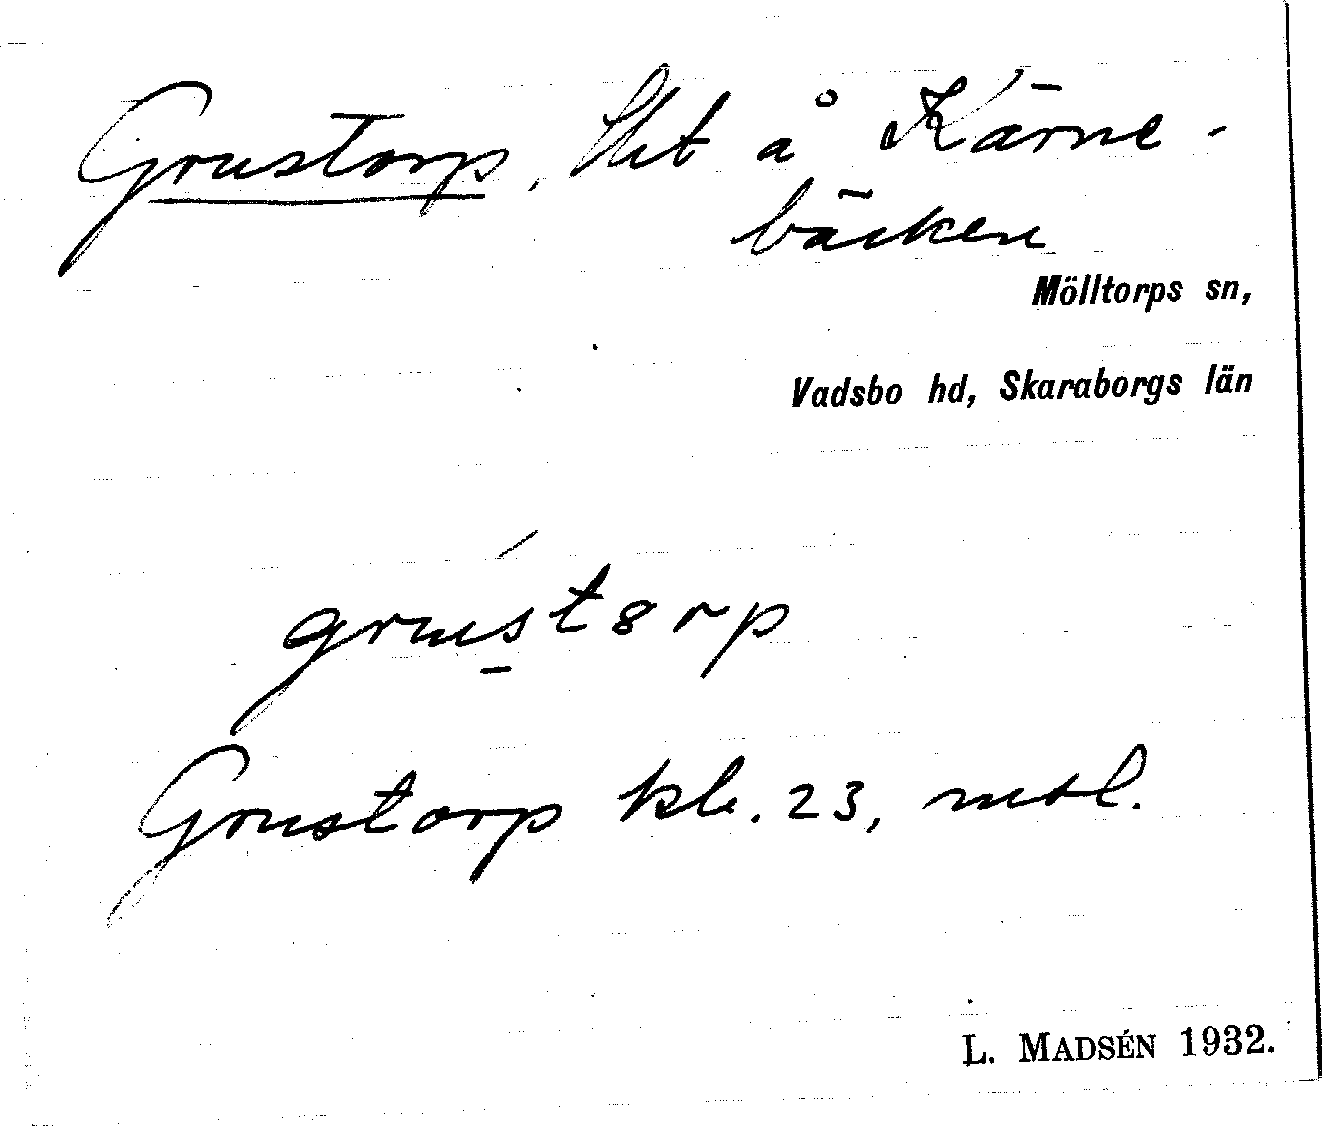 Grustorp, lht å Kärne-
bäcken
Mölltorps sn,
Vadsbo hd, Skaraborgs län
grustorp
Grustorp kbl. 23, mtl.
L. MADSÉN 1932.